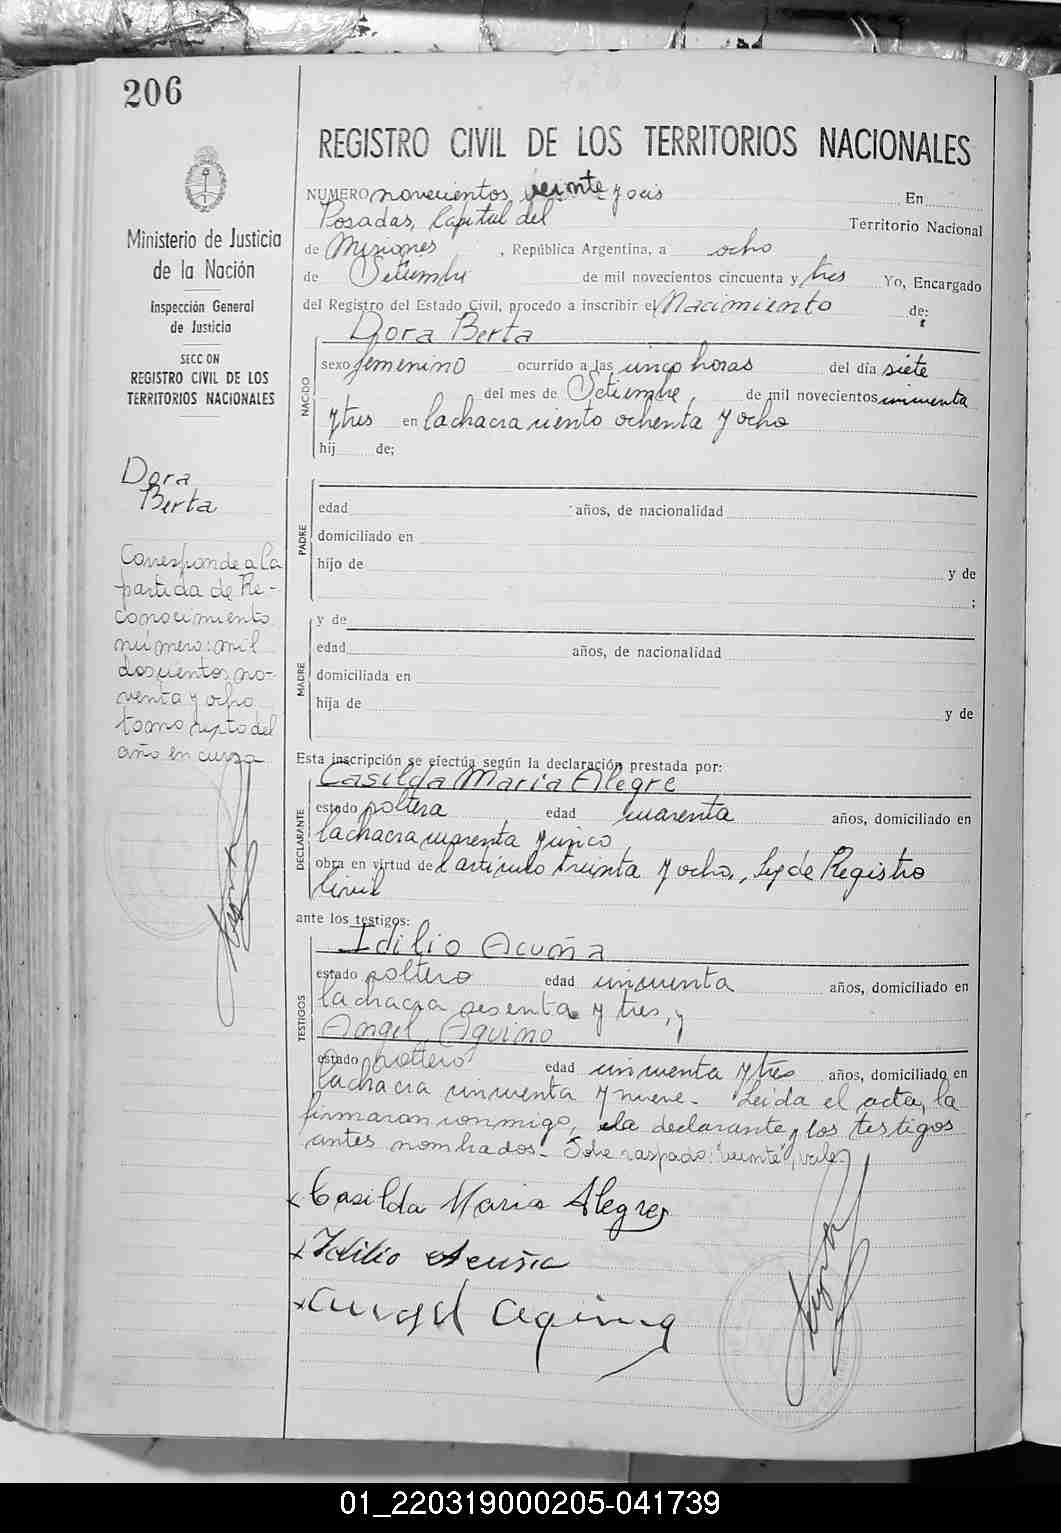 206
Ministerio de Justicia
de la Nación
Inspección General
de Justicia
SECCION
REGISTRO CIVIL DE LOS
TERRITORIOS NACIONALES
Dora
Berta
Corresponde a la
partida de Re-
conocimiento
número: mil
doscientos no-
venta y ocho
tomo septo del
año en curso
REGISTRO CIVIL DE LOS TERRITORIOS NACIONALES
NUMERO novecientos veinte y seis En
Posadas, Capital del Territorio Nacional
de Misiones, República Argentina, a ocho
de Setiembre de mil novecientos cincuenta y tres Yo, Encargado
del Registro del Estado Civil, procedo a inscribir el Nacimiento de:
NACIDO
Dora Berta
sexo femenino ocurrido a las cinco horas del día siete
del mes de Setiembre, de mil novecientos cincuenta
y tres en la chacra ciento ochenta y ocho
hij de;
PADRE
edad años, de nacionalidad
domiciliado en
hijo de y de
;
MADRE
y de
edad años, de nacionalidad
domiciliada en
hija de y de
Esta inscripción se efectúa según la declaración prestada por:
DECLARANTE
Casilda Maria Alegre
estado soltera edad cuarenta años, domiciliado en
la chacra cuarenta y cinco
obra en virtud del artículo treinta y ocho, Ley de Registro
Civil
ante los testigos:
TESTIGOS
Idilio Acuña
estado soltero edad cincuenta años, domiciliado en
la chacra sesenta y tres, y
Angel Aquino
estado soltero edad cincuenta y tres años, domiciliado en
la chacra cincuenta y nueve.- Leída el acta, la
firmaran conmigo, la declarante y los testigos
antes nombrados.- Sobre raspado: "veinte", vale.-
x Casilda Maria Alegre
x Idilio Acuña
x Angel Aquino
01_220319000205-041739